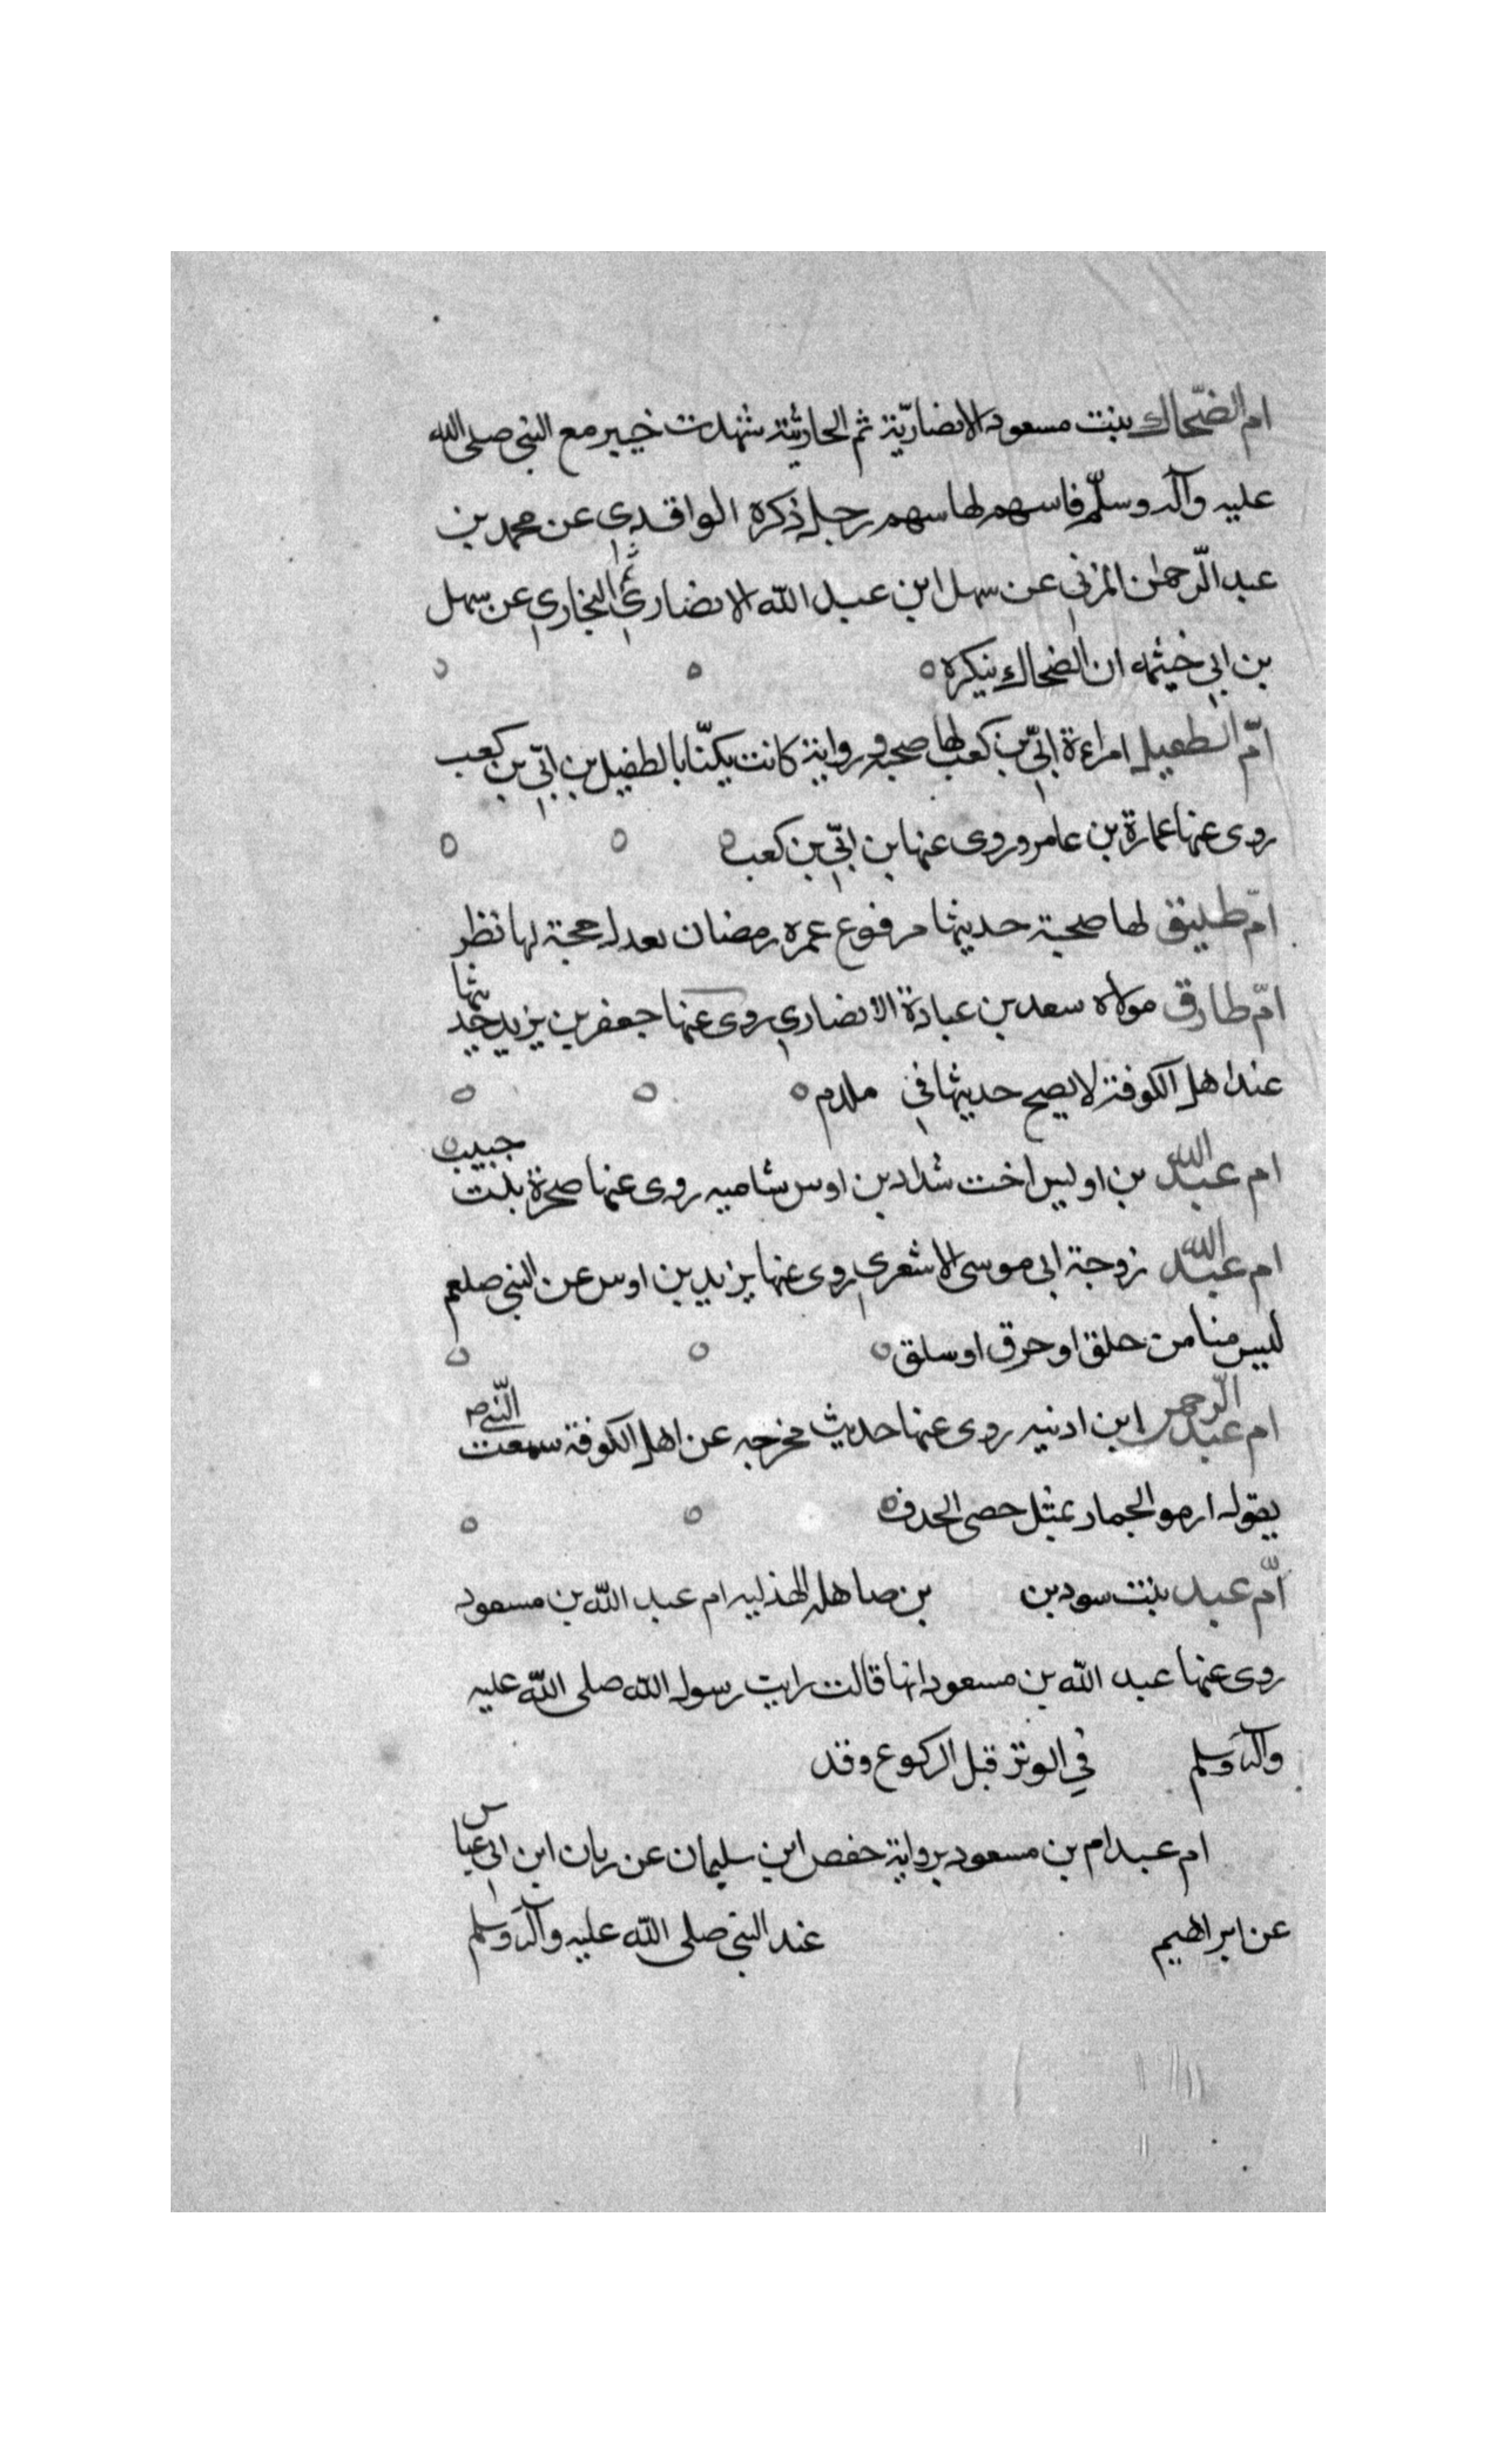 ام الضّحاك بنت مسعود الانصاريّة ثم الحارثية شهدت خيبر مع النبي صلى الله
عليه وآله وسلّم فاسهم لها سهم رجل ذكره الواقدي عن محمد بن
عبد الرّحمن المزني عن سهل ابن عبد الله الانصاري ثم النجاري عن سهل
بن ابي خيثمه ان الضحاك نيكره
امّ الطفيل امراءة ابيّ بن كعب لها صحبة ورواية كانت يكنّا بالطفيل بن ابيّ بن كعب
روى عنها عمارة بن عامر وروى عنها بن ابيّ بن كعب
امّ طليق لها صحبة حديثها مرفوع عمره رمضان بعدل حجة لها نظر
امّ طارق مولاه سعد بن عبادة الانصاري روى عنها جعفر بن يزيد حديثها
عند اهل الكوفة لا يصح حديثها في ملدم
ام عبد الله بن اويس اخت شداد بن اوس شاميه روى عنها صحرة بنت حبيب
ام عبد الله زوجة ابى موسى الاشعري روى عنها يزيد بن اوس عن النبي صلعم
ليس منا من حلق او حرق او سلق
ام عبد الرحمن ابن ادنيه روى عنها حديث مخرجه عن اهل الكوفة سمعت النّبي ص
يقول ارموا لجمار بمثل حصى الحدف
امّ عبد بنت سود بن بن صاهله الهذليه ام عبد الله بن مسعود
روى عنها عبد الله بن مسعود انها قالت رايت رسول الله صلى الله عليه
وآله وسلم في الوتر قبل الركوع وقد
ام عبد ام بن مسعود برواية حفص ابن سليمان عن ربان ابن ابي عياس
عن ابراهيم عند النبي صلى الله عليه وآله وسلم